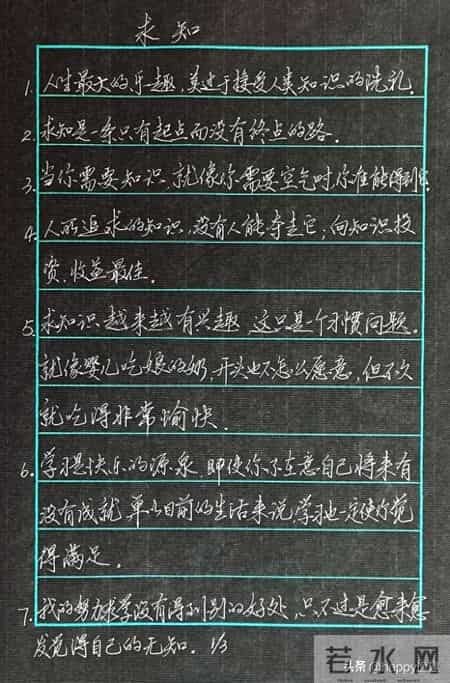 求知
1. 人生最大的乐趣,莫过于接受人类知识的洗礼。
2. 求知是一条只有起点而没有终点的路。
3. 当你需要知识,就像你需要空气时,你准能得到它
4. 人所追求的知识,没有人能夺走它;向知识投
资,收益最佳。
5. 求知识越来越有兴趣,这只是一个习惯问题。
就像婴儿吃娘的奶,开头也不怎么愿意,但不久
就吃得非常愉快。
6. 学习是快乐的源泉,即使你不在意自己将来有
没有成就,单以目前的生活来说,学习也一定使你觉
得满足。
7. 我的努力求学没有得到别的好处,只不过是愈来愈
发觉得自己的无知。1/3
若水网
头条 @happy